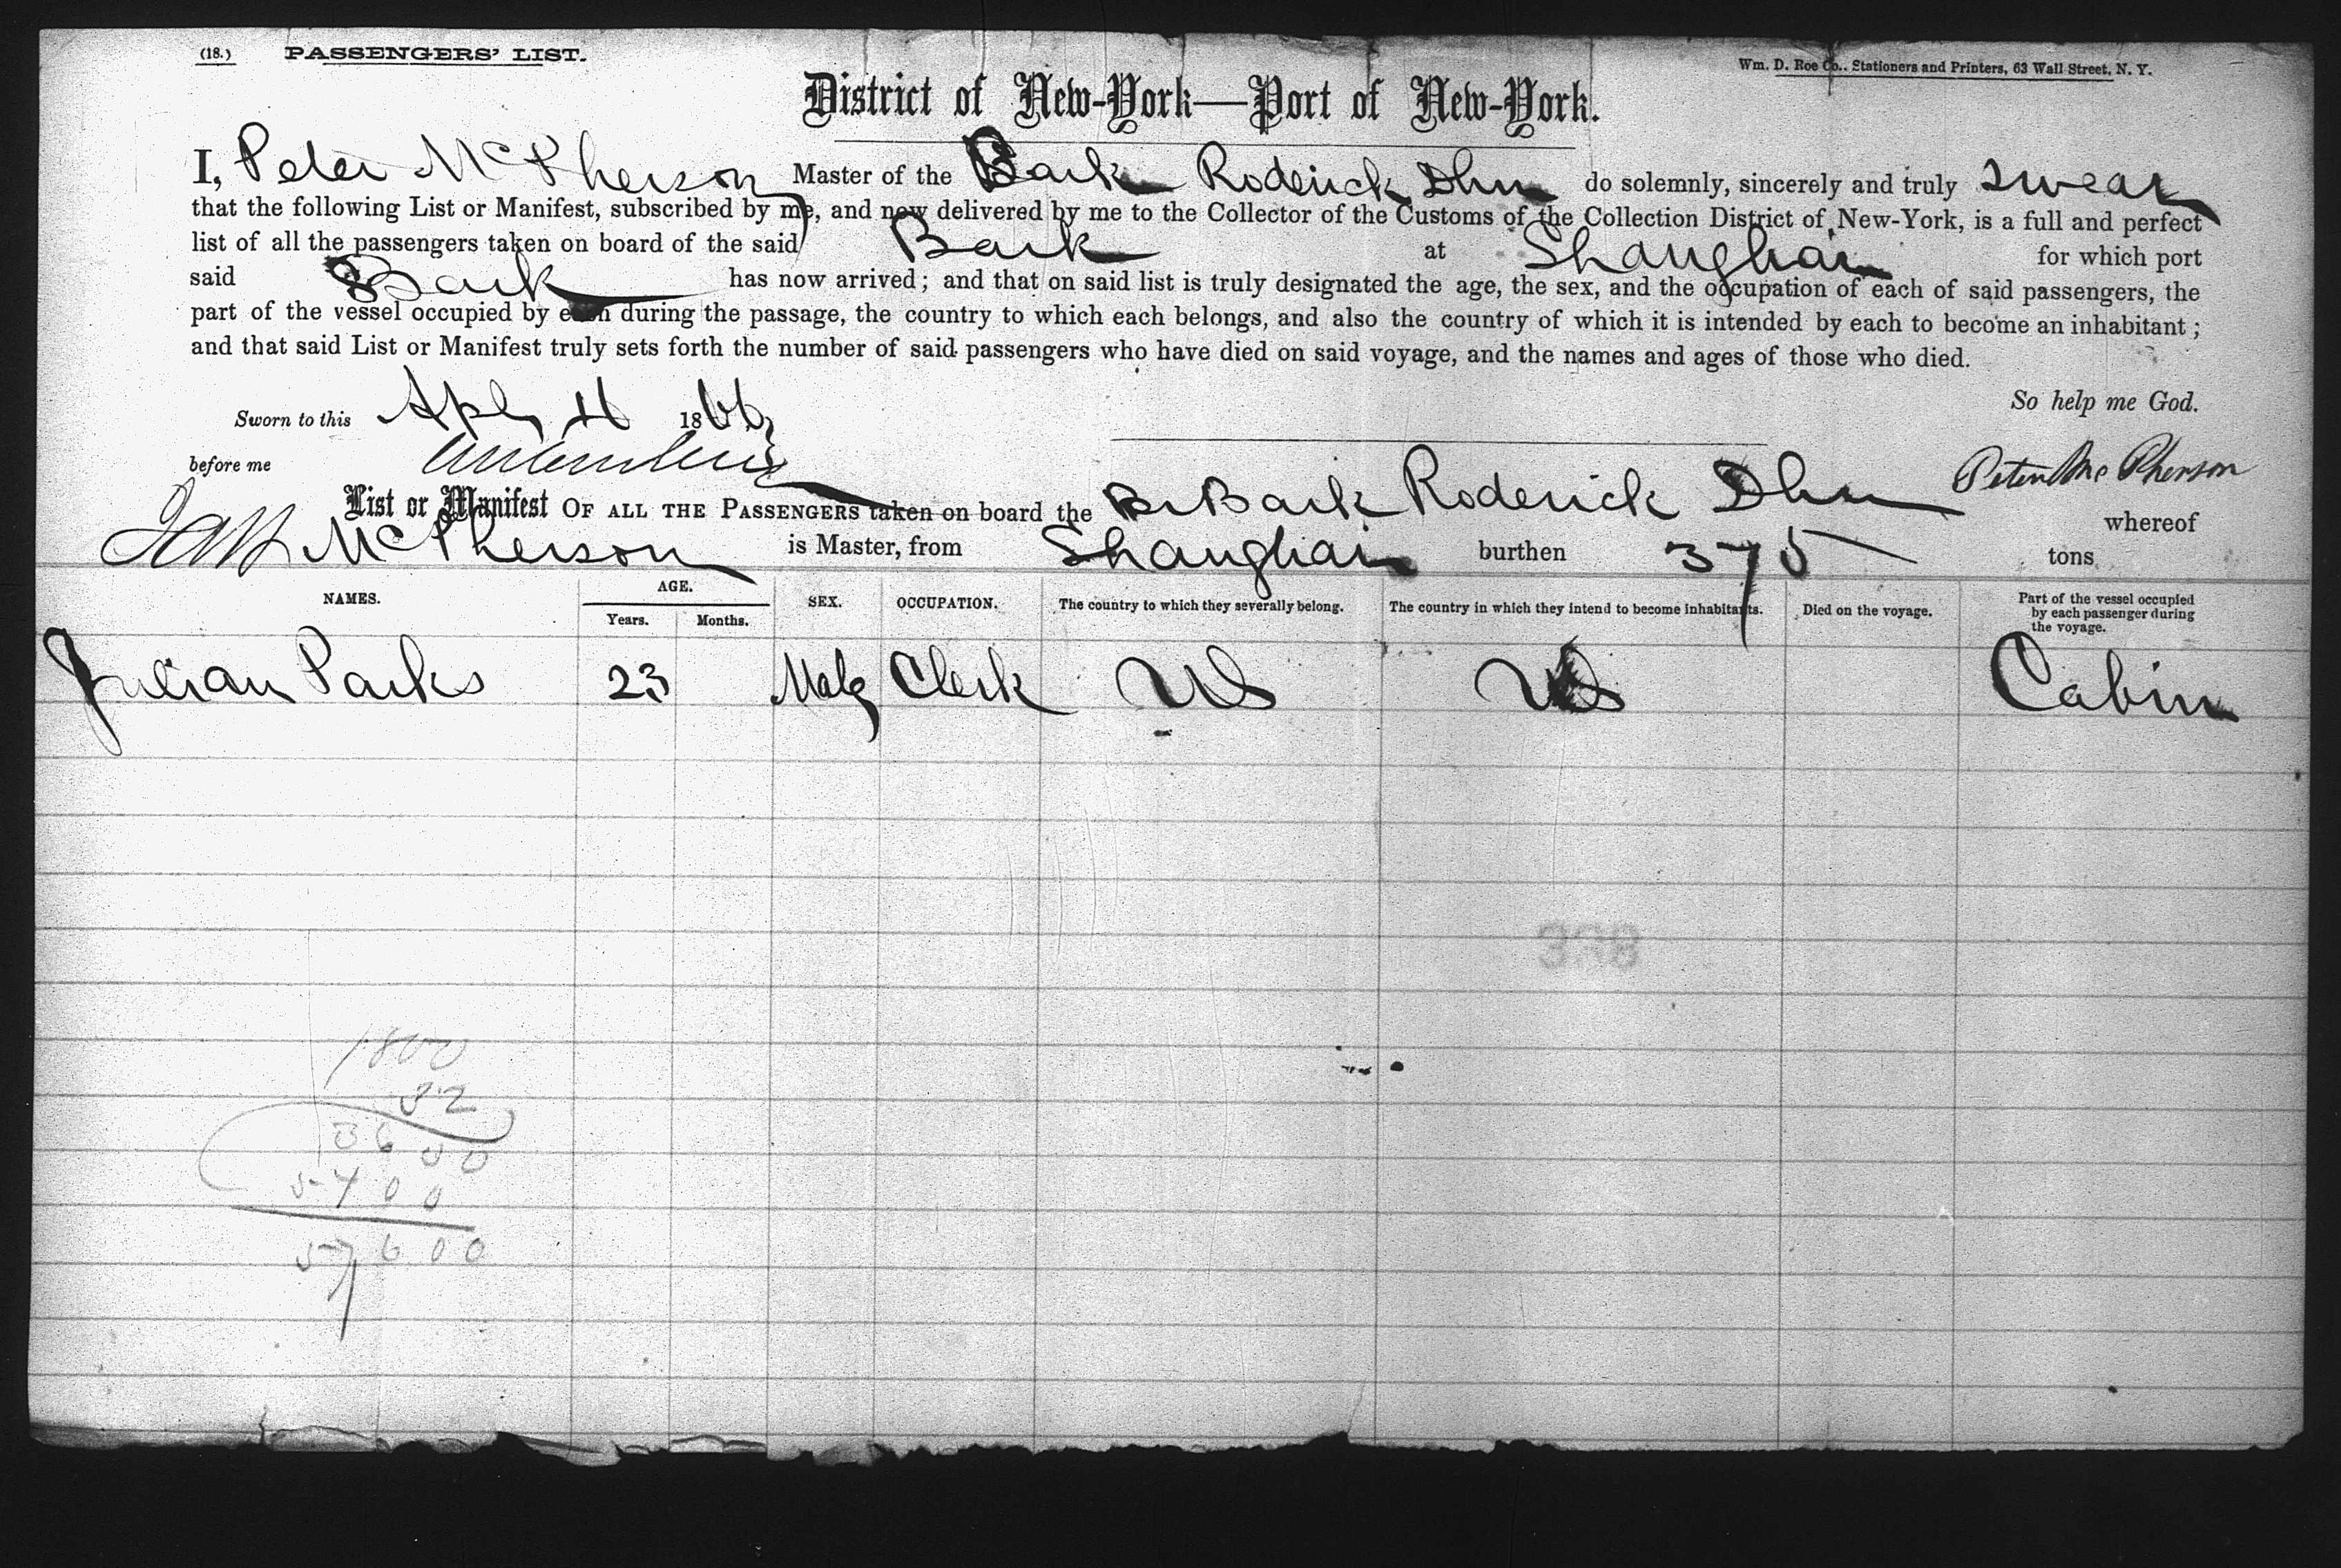 (18.) PASSENGERS' LIST.
Wm. D. Roe Co., Stationers and Printers, 63 Wall Street, N. Y.
District of New-York—Port of New-York.
I, Peter McPherson Master of the Bark Roderick Dhu do solemnly, sincerely and truly swear
that the following List or Manifest, subscribed by me, and now delivered by me to the Collector of the Customs of the Collection District of New-York, is a full and perfect
list of all the passengers taken on board of the said Bark at Shanghai for which port
said Bark has now arrived; and that on said list is truly designated the age, the sex, and the occupation of each of said passengers, the
part of the vessel occupied by each during the passage, the country to which each belongs, and also the country of which it is intended by each to become an inhabitant;
and that said List or Manifest truly sets forth the number of said passengers who have died on said voyage, and the names and ages of those who died.
So help me God.
Sworn to this Apl 11 1866
before me
Peter McPherson
List or Manifest OF ALL THE PASSENGERS taken on board the Br Bark Roderick Dhu whereof
McPherson is Master, from Shanghai burthen 375 tons
NAMES. AGE. Years. Months. SEX. OCCUPATION. The country to which they severally belong. The country in which they intend to become inhabitants. Died on the voyage. Part of the vessel occupied by each passenger during the voyage.
Julian Parks 23 Male Clerk US US Cabin
1800
32
3600
5400
57600